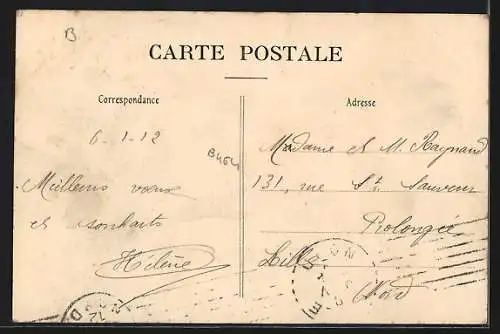 B
CARTE POSTALE
Correspondance
6-1-12
Meilleurs vœux
et souhaits
Hélène
B464
Adresse
Madame et M. Raynaud
131, rue St. Sauveur
Prolongée
Lille
Nord